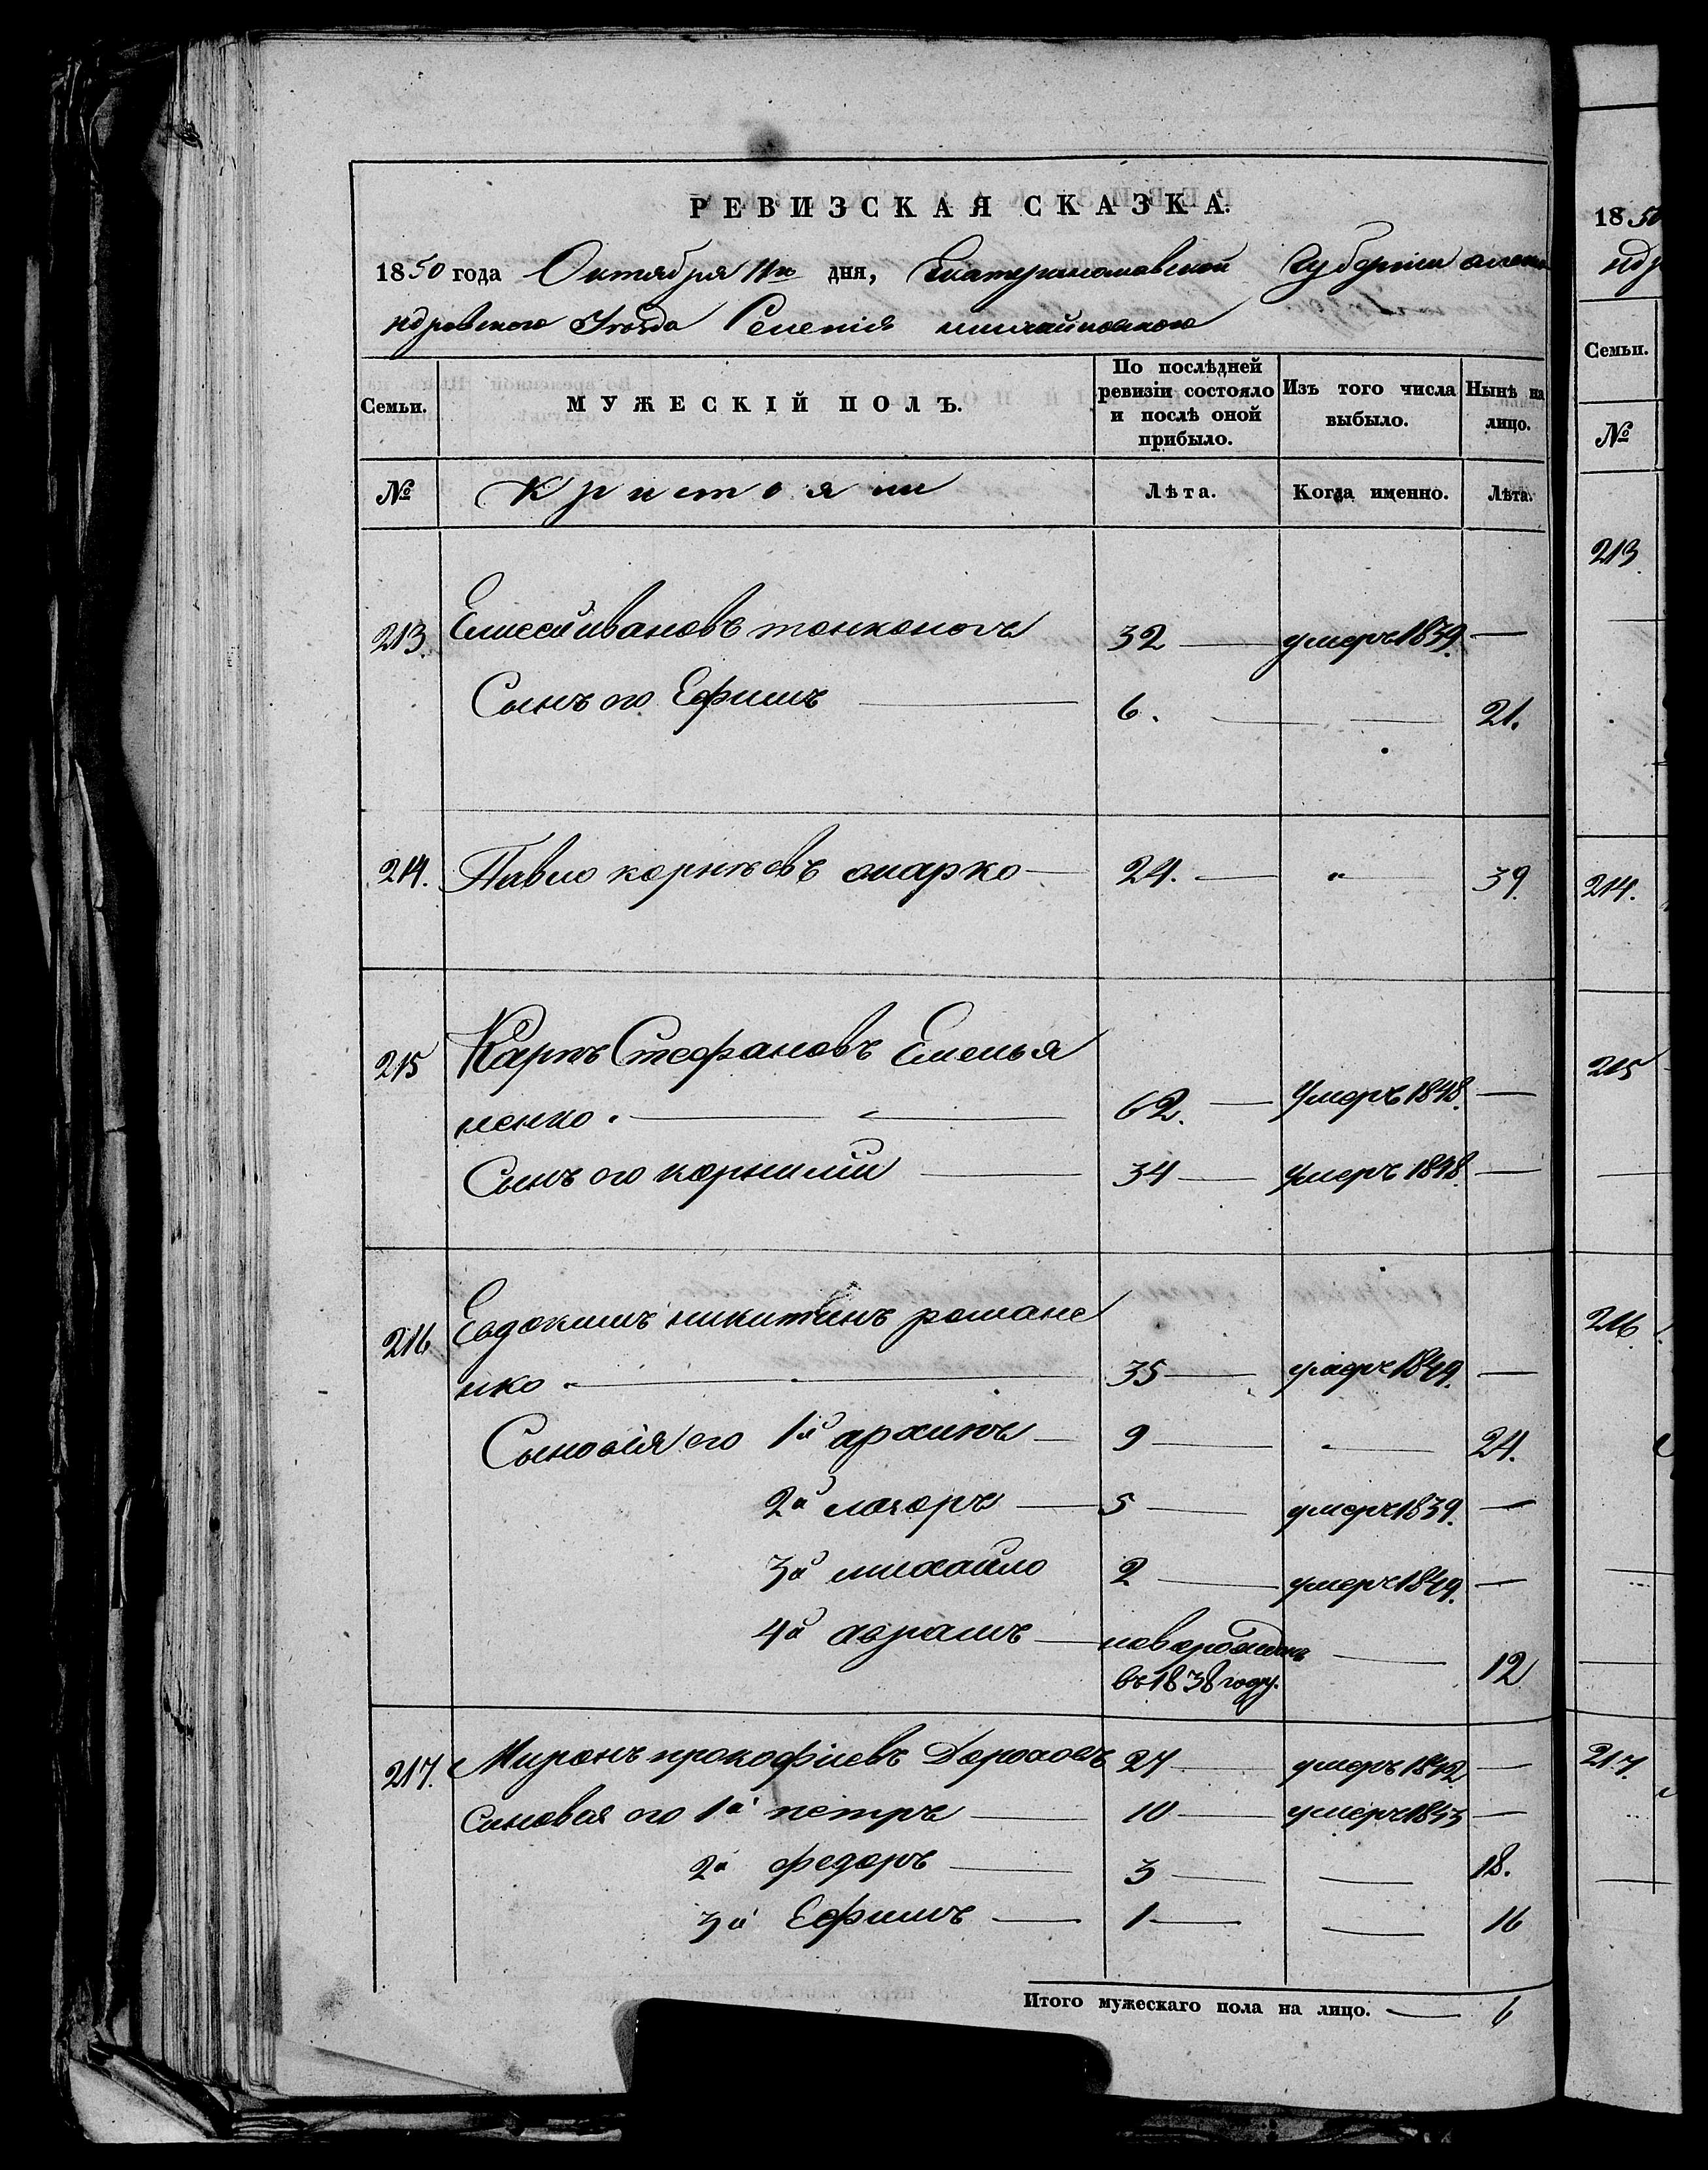 РЕВИЗСКАЯ СКАЗКА.
1850 года Октября 11го дня, Екатеринославской Губернiи алекса
ндровского Уезда Селенiя михайловского
Семьи.
МУЖЕСКІЙ ПОЛЪ.
По послѣдней ревизіи состояло и послѣ оной прибыло.
Изъ того числа выбыло.
Нынѣ на лицо.
№
Кристояни
Лѣта.
Когда именно.
Лѣта.
213. Елисей ивановъ тонконогъ 32 — умеръ 1839. —
Сынъ его Ефимъ — 6. — — 21.
214. Павло корнѣевъ марко — 24. — „ — 39.
215 Карпъ Стефановъ Емелья
ненко. — 62. — Умеръ 1848. —
Сынъ его корнилiй — 34 — Умеръ 1848. —
216 Евдокимъ никитинъ романе
нко — 35 — умеръ 1849. —
Сыновiя его 1й архипъ — 9 — — 24.
2й лазоръ — 5 — умеръ 1839. —
3й михайло 2 — умеръ 1849. —
4й аврамъ — новорожденъ — 12
въ 1838 году.
217. Миронъ прокофiевъ Дороховъ 27 — умеръ 1842 —
синовья его 1й петръ — 10 — умеръ 1843 —
2й федоръ — 3 — — 18.
3й Ефимъ — 1 — — 16
Итого мужескаго пола на лицо. — 6
1850
ндр
Семьи.
№
213
214.
215
216
217.